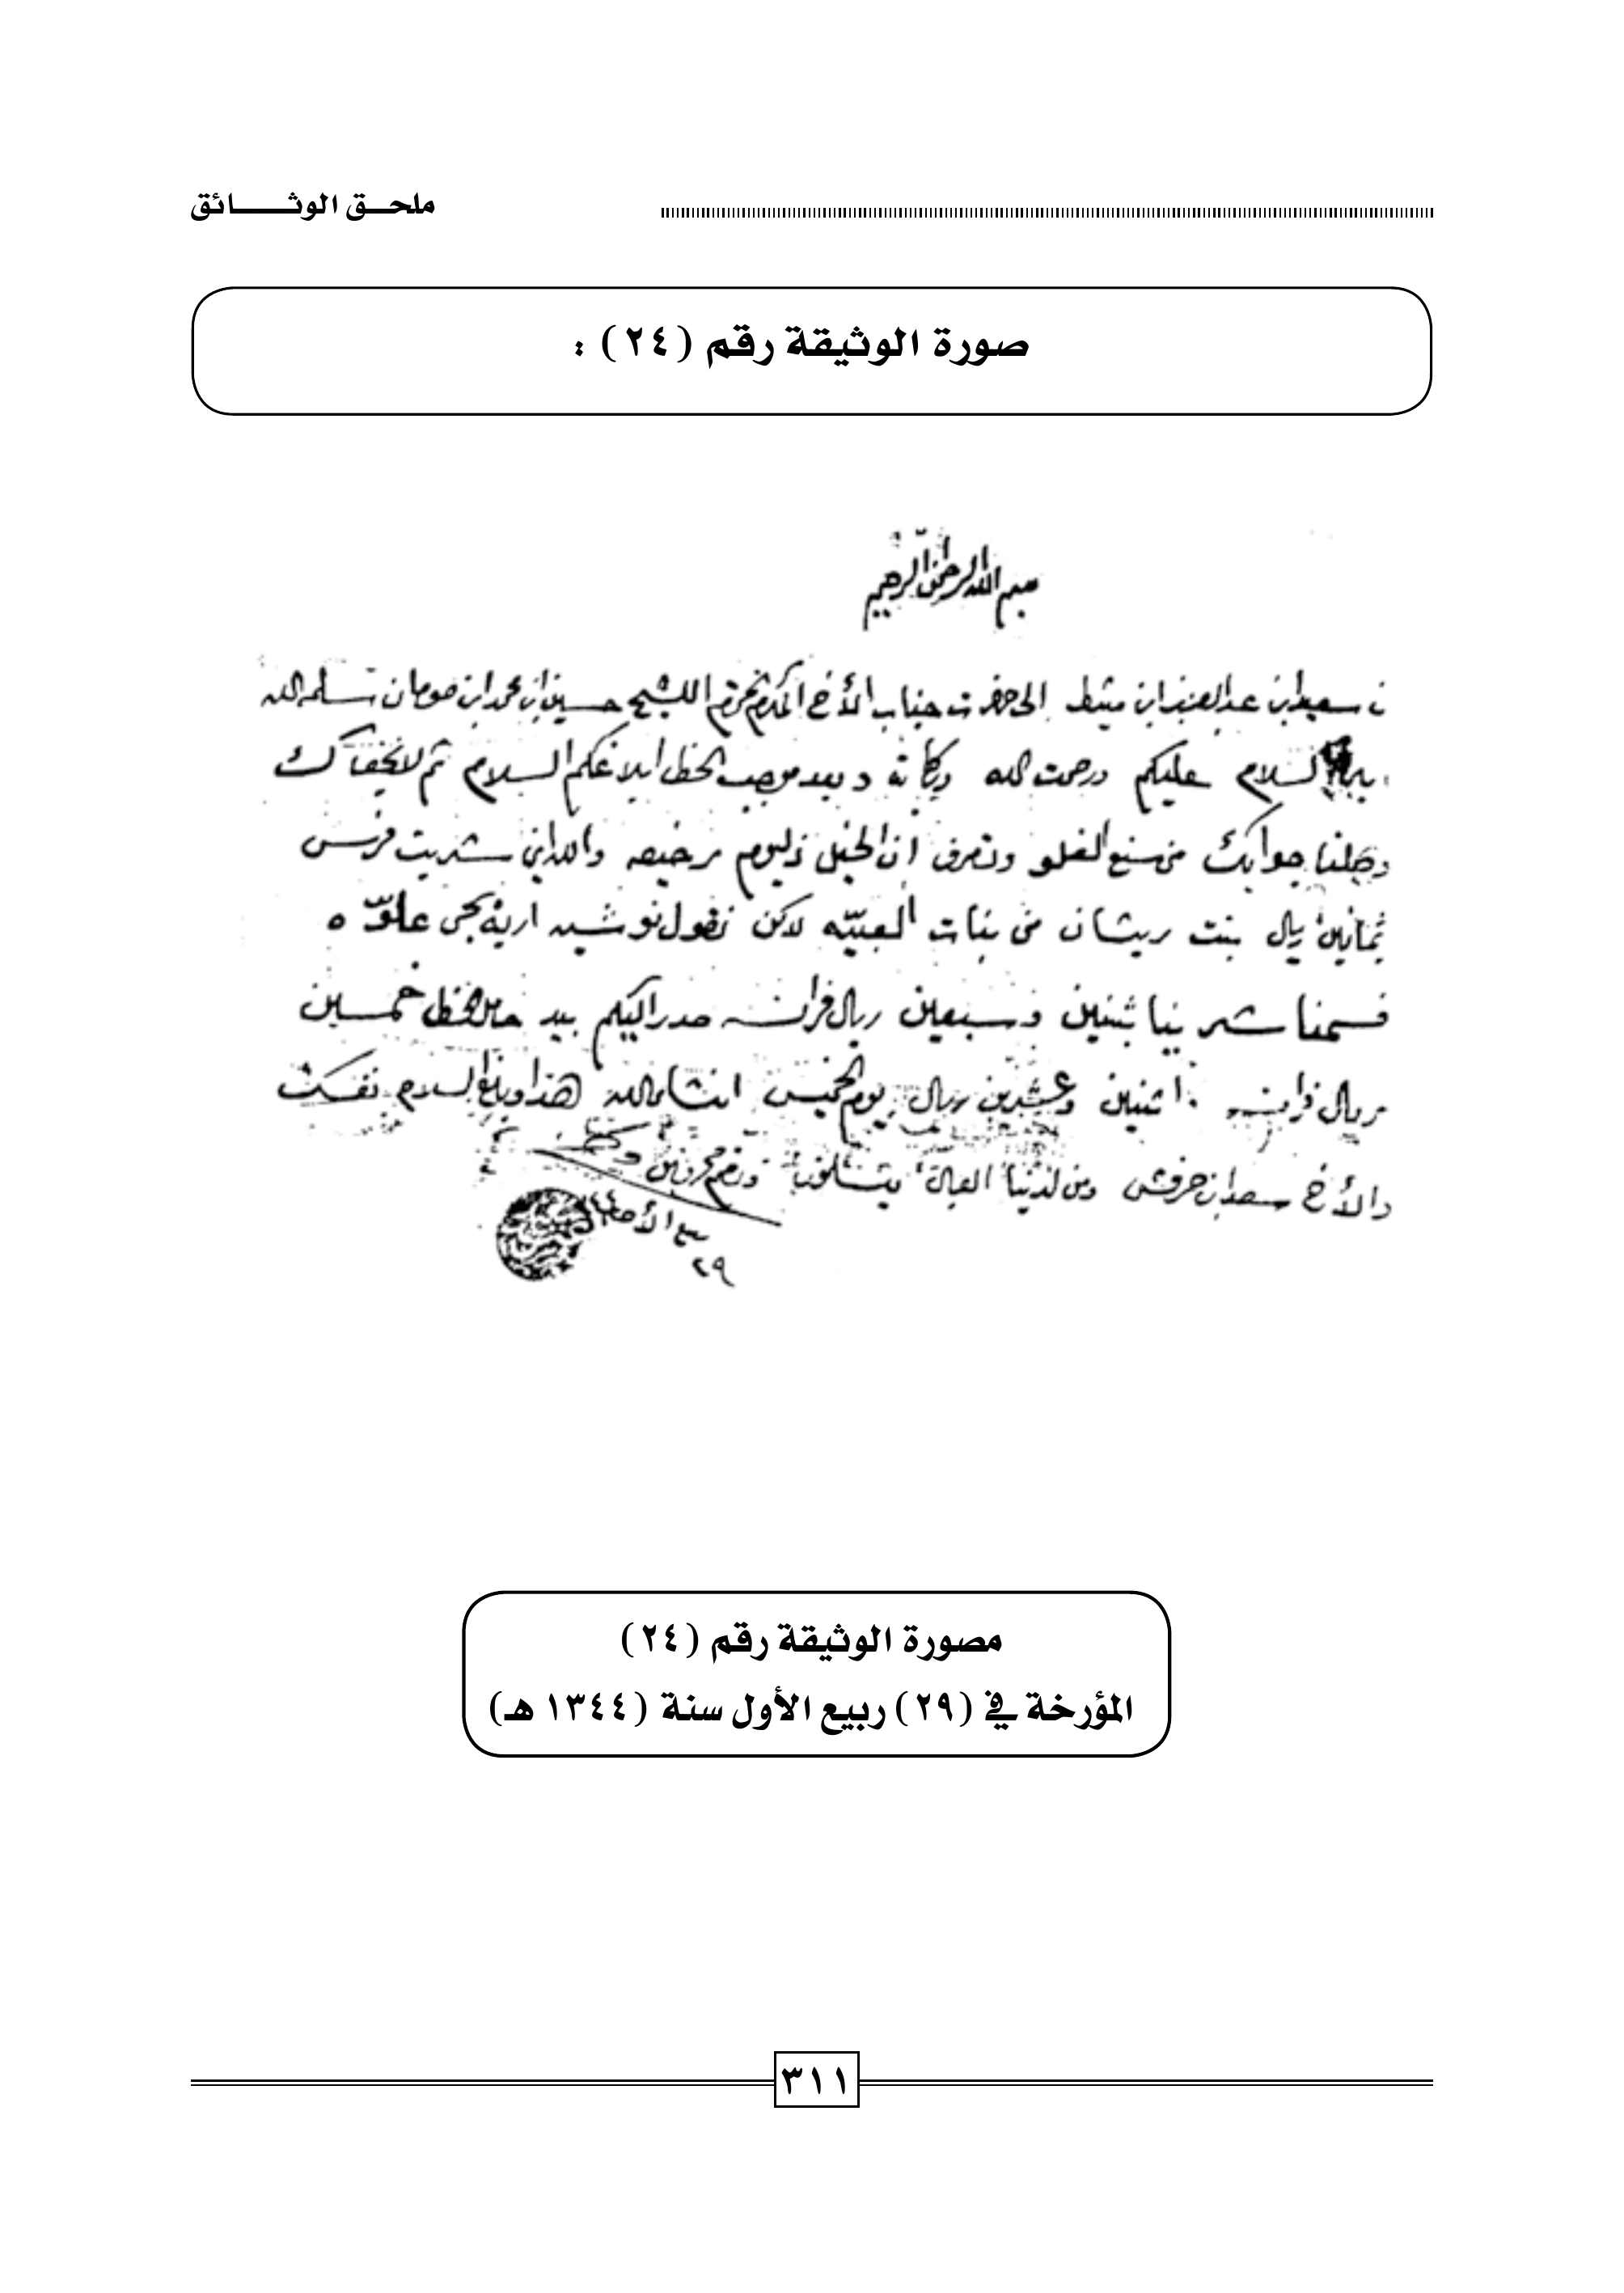 ملحق الوثائق
صورة الوثيقة رقم (٢٤) :
بسم الله الرحمن الرحيم
سعيد ابن عبد العزيز ابن مشيط الى حضرت جناب الأخ المكرم المحترم الشيخ حسين ابن محمد ابن صومان سلمه الله
السلام عليكم ورحمت الله وبركاته وبعد موجب الخط ابلاغكم السلام ثم لا يخفاك
وصلنا جوابك من سنع الفلو وتعرف ان الخيل ذليوم رخيصه والله اني شريت فرس
ثمانين ريال بنت ريشان من بنات العبيّه لاكن نقول
قسمنا ثنين وسبعين ريال فرانسه صدر اليكم بيد حامل الخط خمسين
ريال فرانسه اثنين وعشرين ريال يوم الخميس انشاء الله هذا وبلغ السلام نفسك
والأخ سعد ابن حرفش ومن لدينا العيال يسلمون وانتم محروسين
٢٩
مصورة الوثيقة رقم (٢٤)
المؤرخة في (٢٩) ربيع الأول سنة (١٣٤٤ هـ)
٣١١